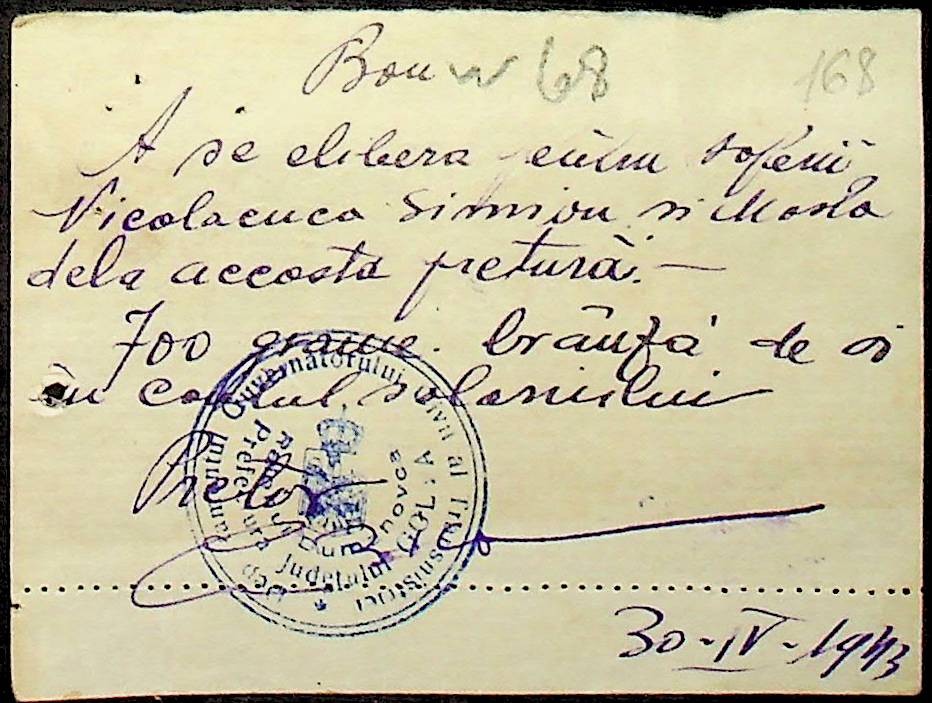 Bon № 68
168
A se elibera soferii
Nicolaenco Simion si Mosla
dela accosta pretură. —
700 grame. brânză de oi
în contul salariului
Pretor
Departamentul Guvernatorului Civil al Transnistriei
Prefectura Județului GOLTA
30-IV-1943